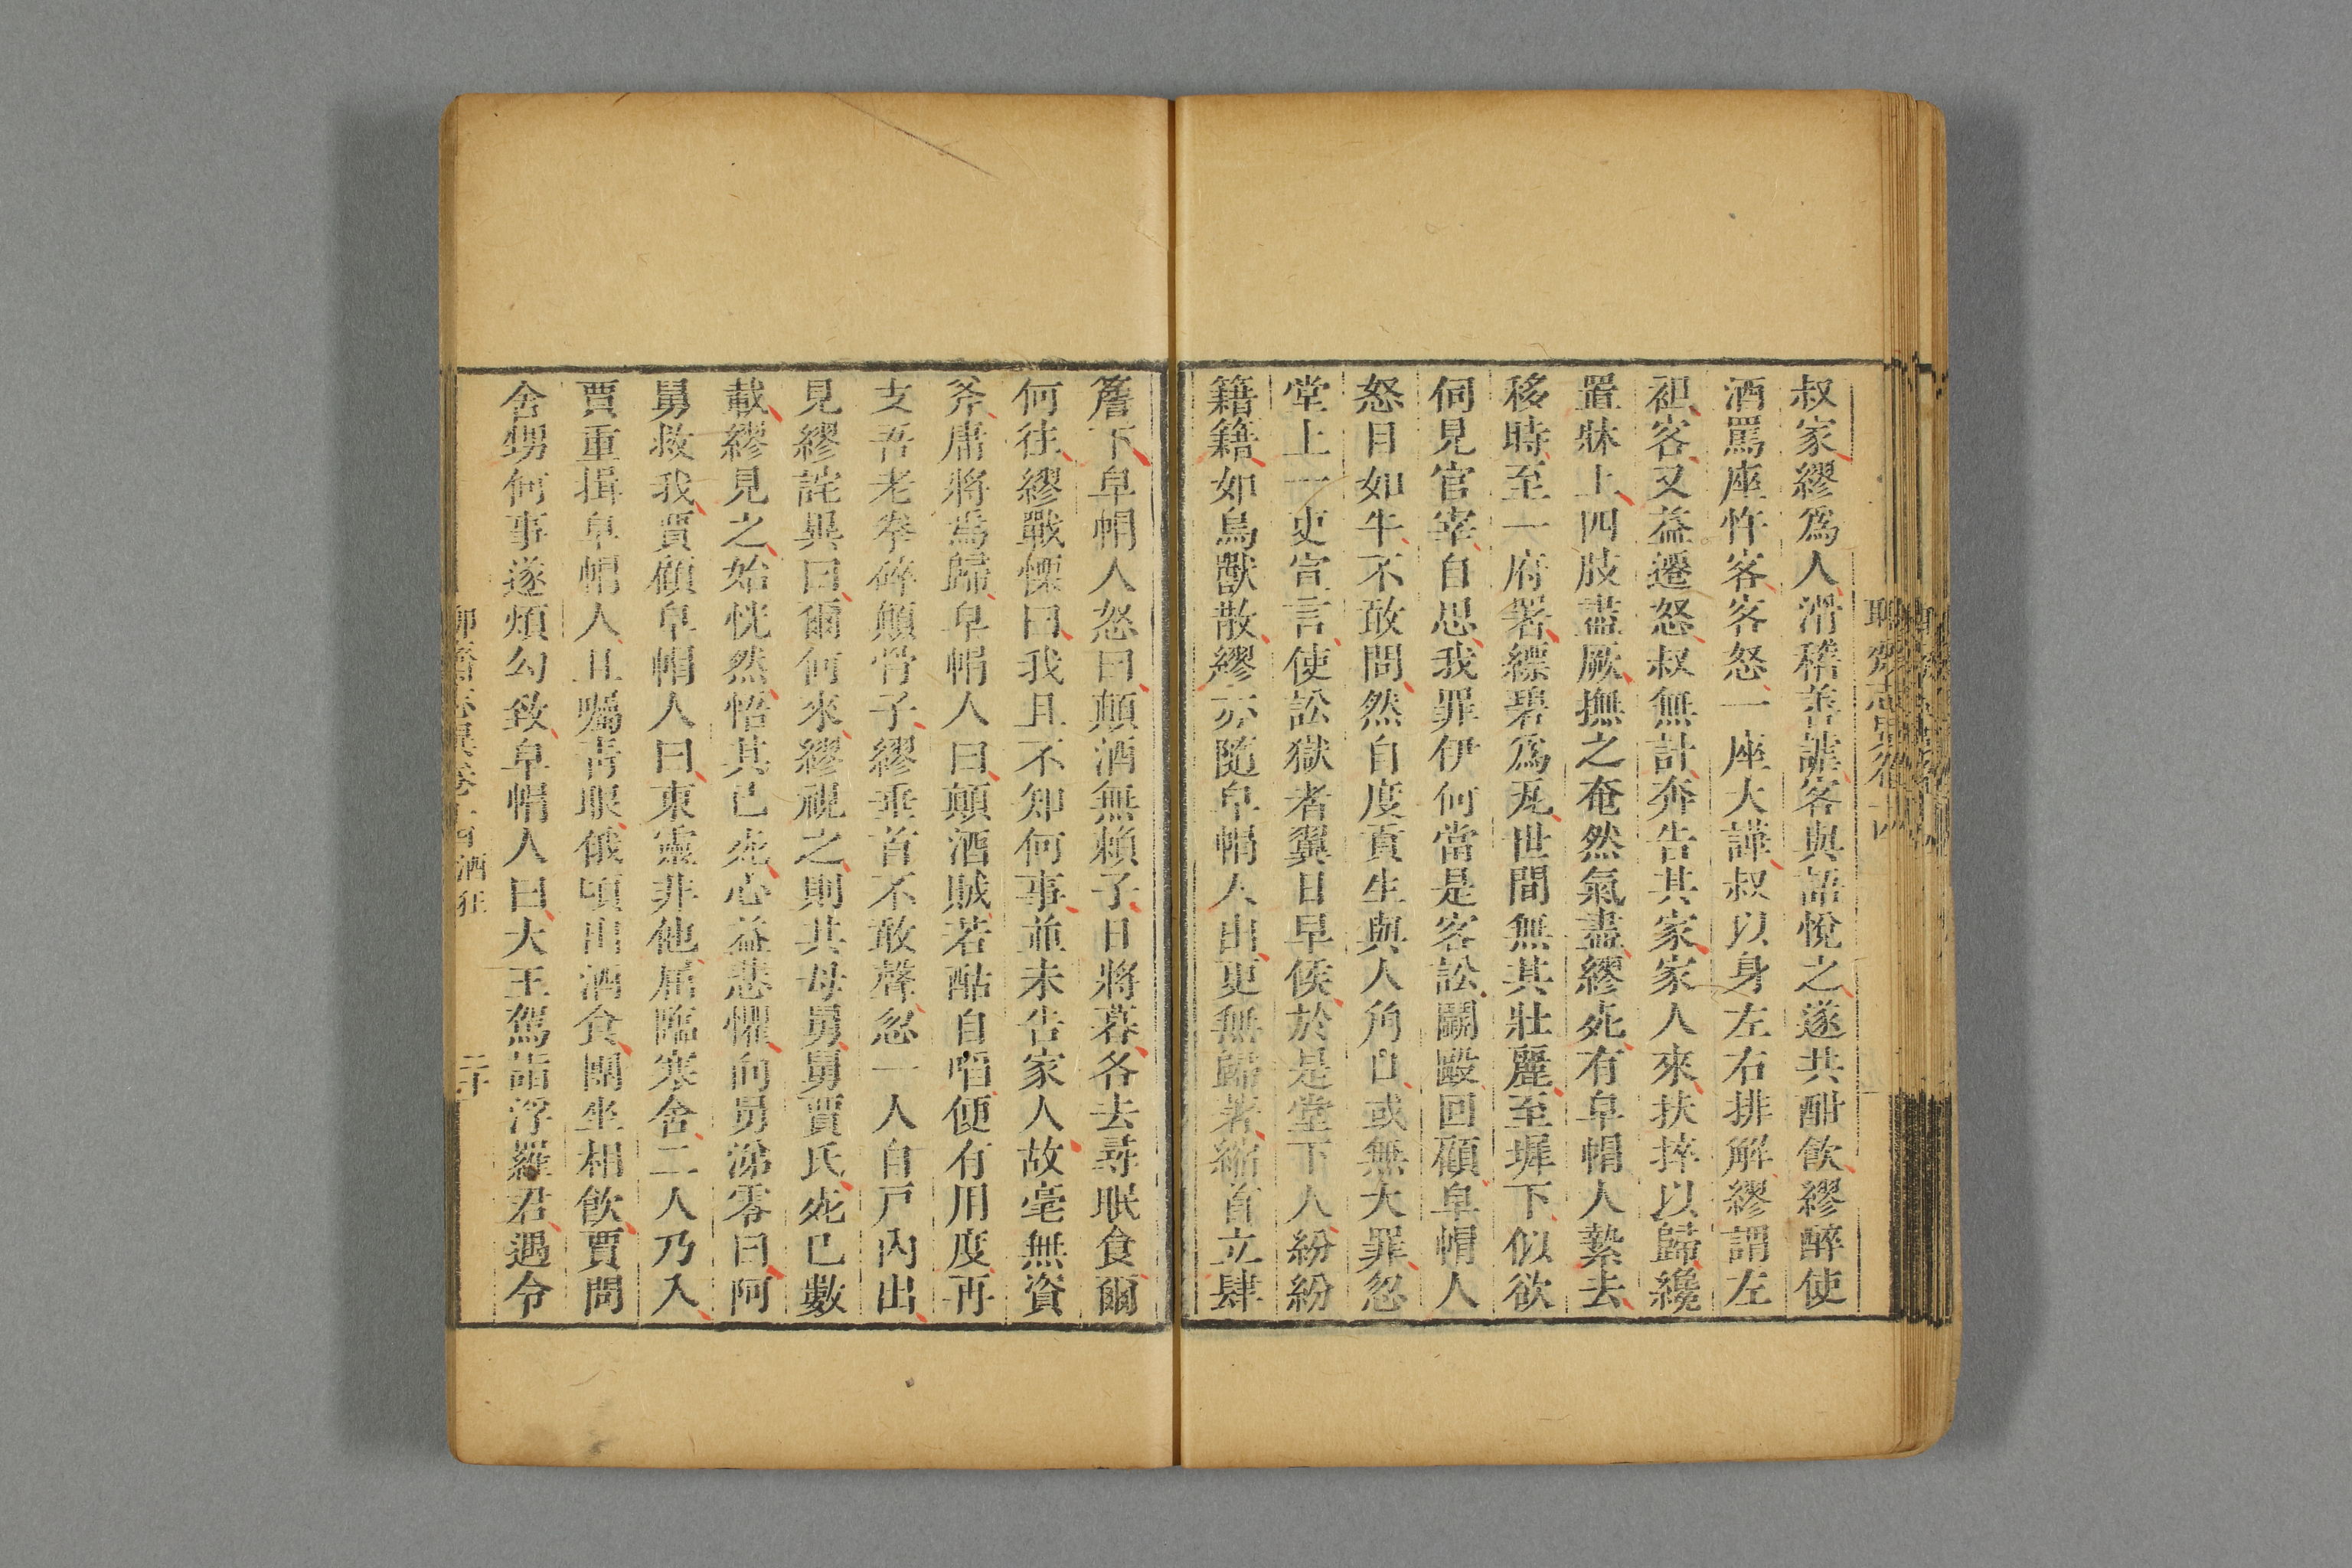 叔家繆爲人滑稽善謔客與語悅之遂共酣飲繆醉使
酒罵座忤客客怒一座大譁叔以身左右排解繆謂左
袒客又益遷怒叔無計奔告其家家人來扶捽以歸纔
置牀上四肢盡厥撫之奄然氣盡繆死有皁帽人縶去
移時至一府署縹碧爲瓦世間無其壯麗至墀下似欲
伺見官宰自思我罪伊何當是客訟鬭毆回顧皁帽人
怒目如牛不敢問然自度貢生與人角口或無大罪忽
堂上一吏宣言使訟獄者翼日早候於是堂下人紛紛
籍籍如鳥獸散繆亦隨皁帽人出更無歸著縮首立肆
簷下皁帽人怒曰顛酒無賴子日將暮各去尋眠食爾
何往繆戰慄曰我且不知何事並未告家人故毫無資
斧庸將焉歸皁帽人曰顛酒賊若酤自啗便有用度再
支吾老拳碎顛骨子繆垂首不敢聲忽一人自戸內出
見繆詫異曰爾何來繆視之則其母舅舅賈氏死已數
載繆見之始恍然悟其已死心益悲懼向舅涕零曰阿
舅救我賈顧皁帽人曰東靈非他屈臨寒舍二人乃入
賈重揖皁帽人且囑靑眼俄頃出酒食團坐相飲賈問
舍甥何事遂煩勾致皁帽人曰大王駕詣浮羅君遇令
酒狂
二十